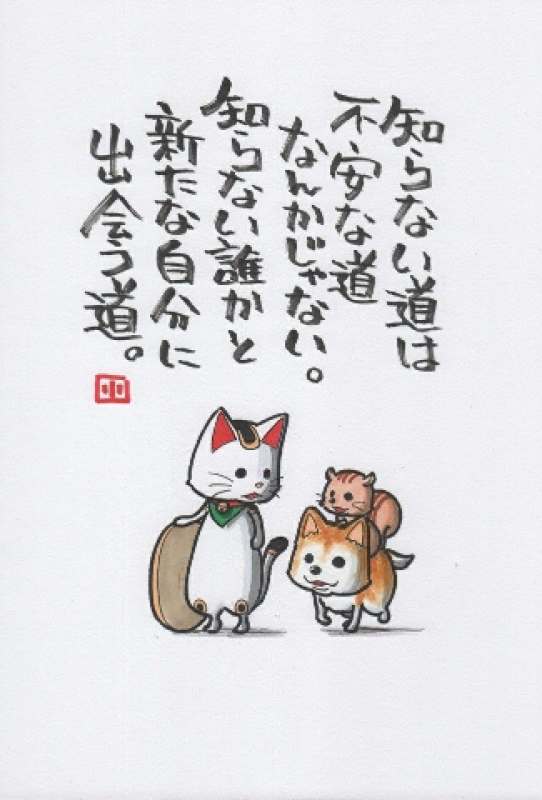 知らない道は
不安な道
なんかじゃない。
知らない誰かと
新たな自分に
出会う道。